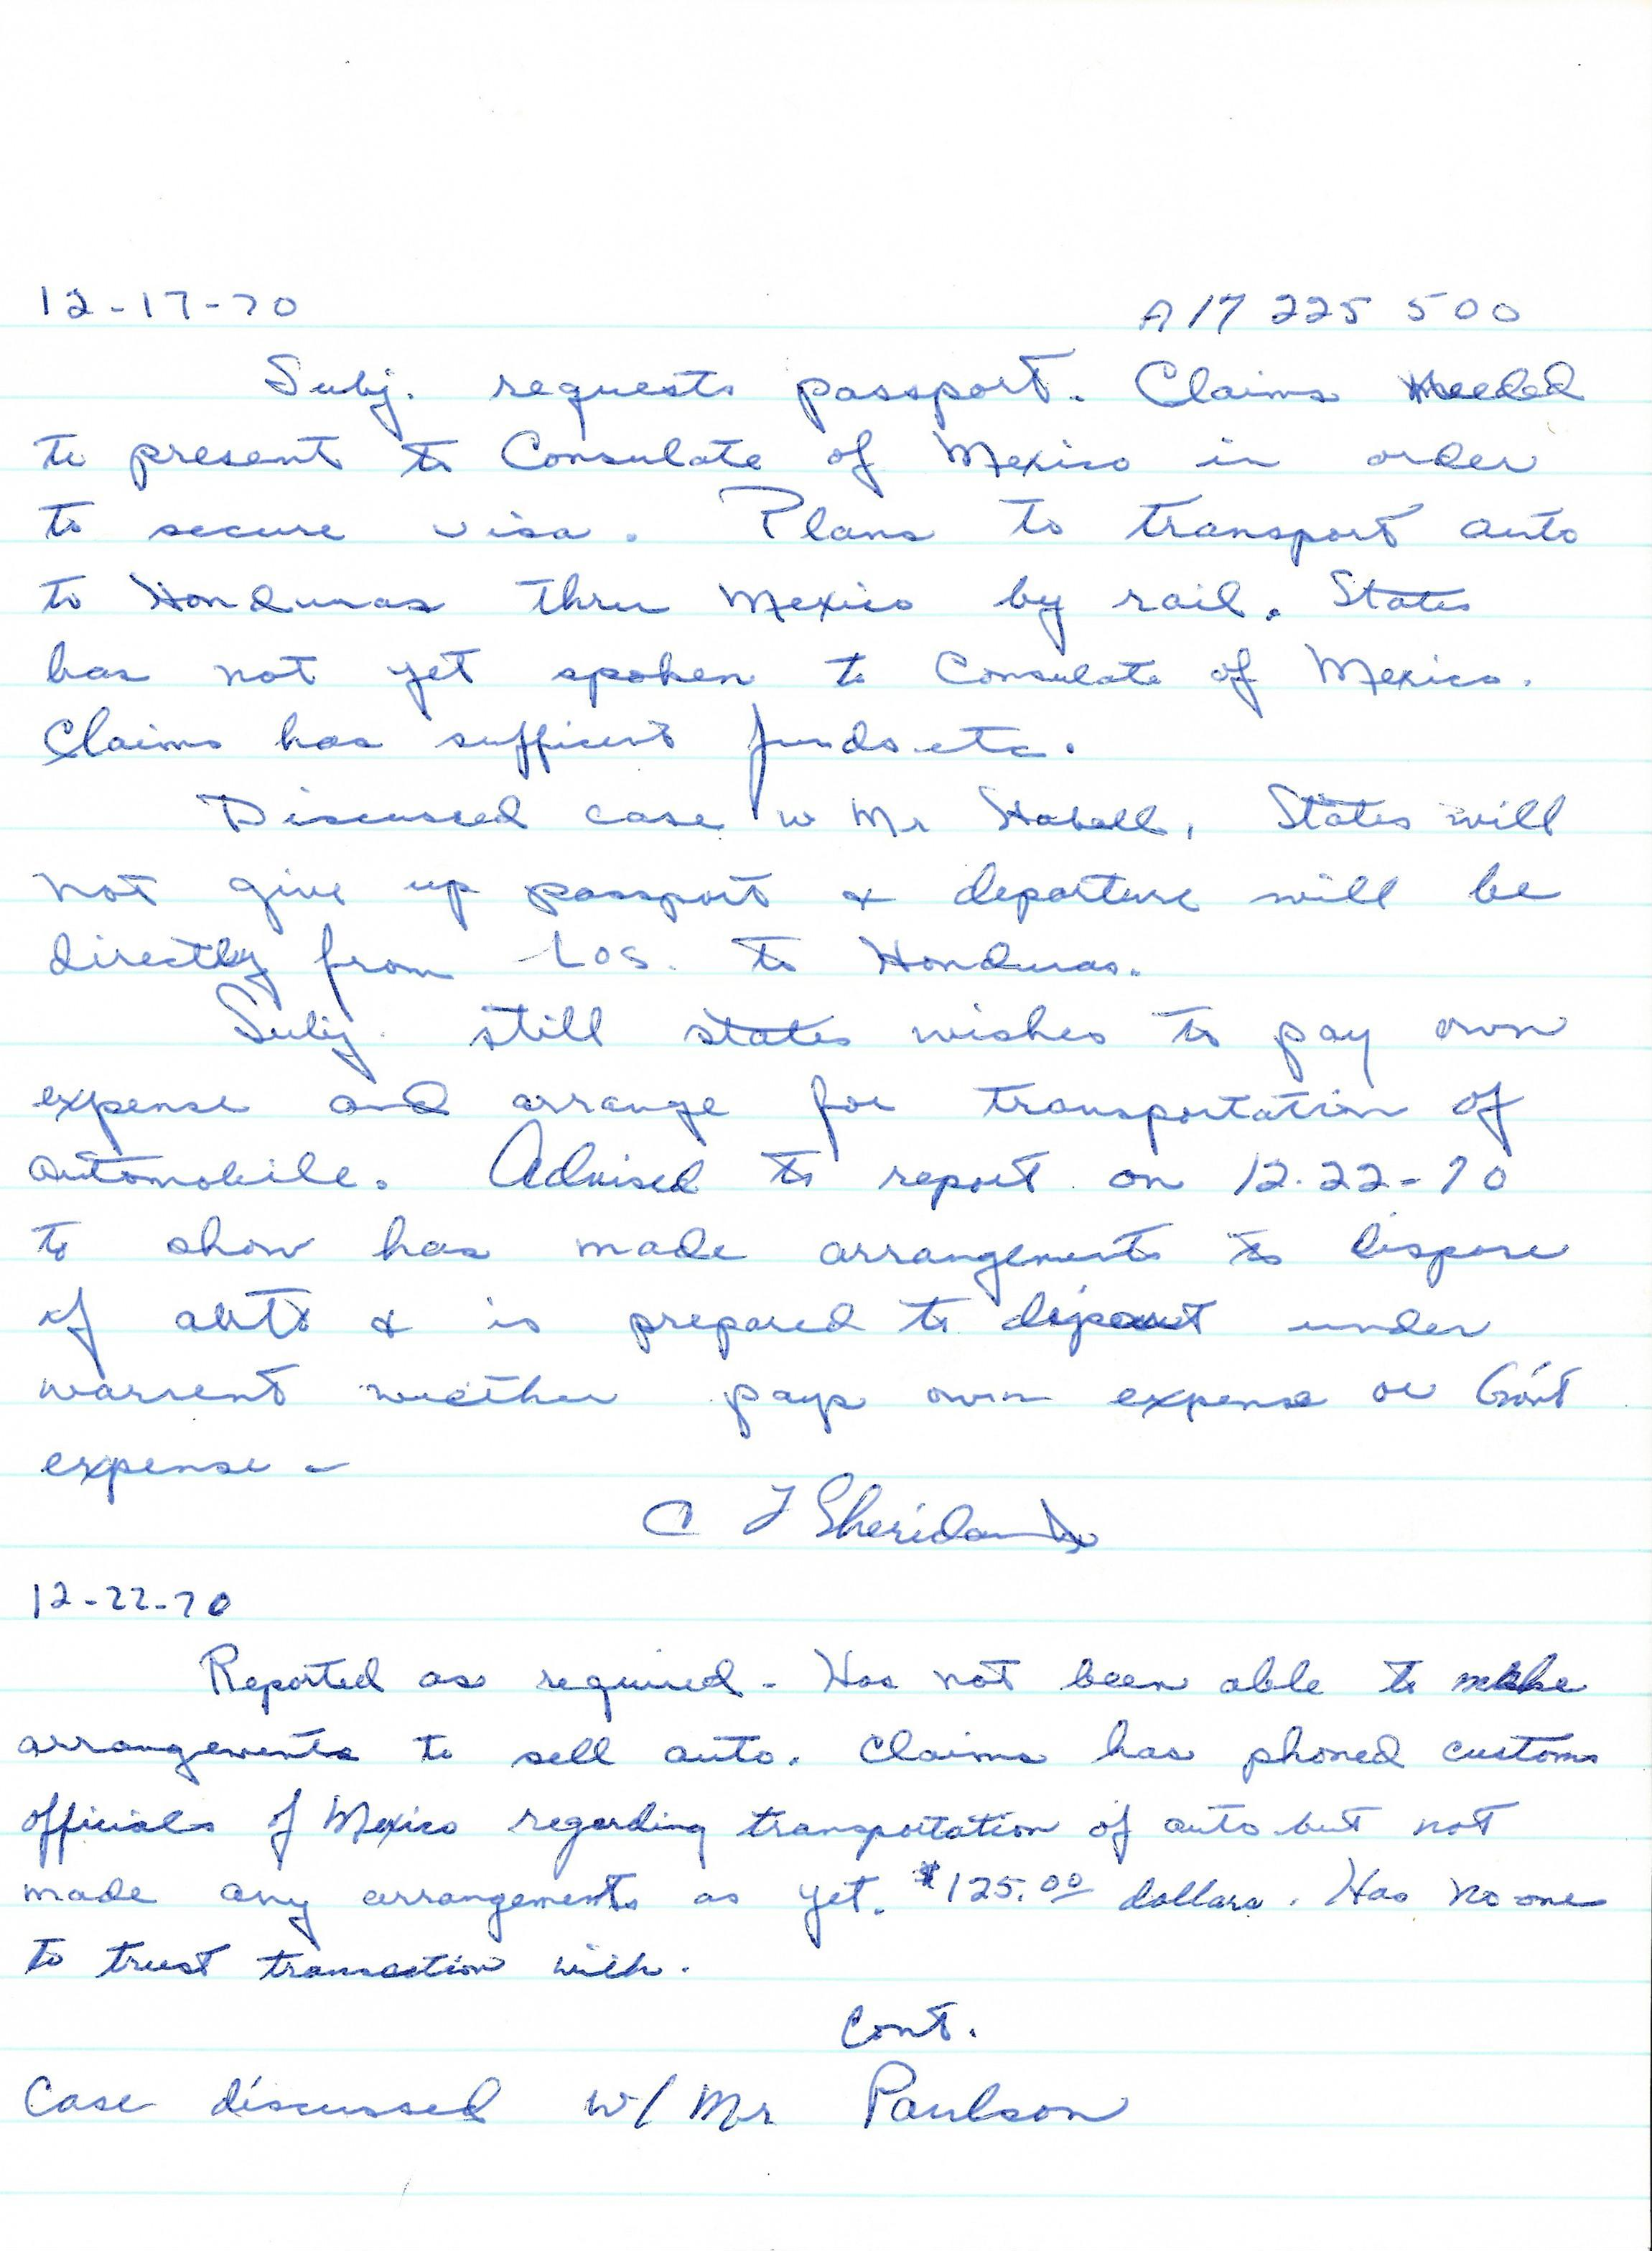 12-17-70 A17 225 500
Subj. requests passport. Claims needed
to present to Consulate of Mexico in order
to secure visa. Plans to transport auto
to Honduras thru Mexico by rail. States
has not yet spoken to Consulate of Mexico.
Claims has sufficent funds etc.
Discussed case w Mr States will
not give up passport & departure will be
directly from LOS. to Honduras.
Subj. still states wishes to pay own
expense and arrange for transportation of
automobile. Advised to report on 12-22-70
to show has made arrangements to dispose
of auto & is prepared to depart under
warrent wether pays own expense or Gov't
expense -
C F Sheridan
12-22-70
Reported as required - Has not been able to make
arrangements to sell auto. Claims has phoned customs
officials of Mexico regarding transportation of auto but not
made any arrangements as yet. $125.00 dollars. Has no one
to trust transaction with.
Cont.
Case discussed w/ Mr Paulson